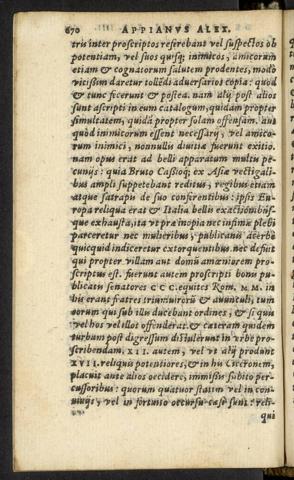 670 APPIANVS ALEX.
tris inter proscriptos referebant vel suspectos ob
potentiam, vel suos quisq; inimicos, amicorum
etiam & cognatorum salutem prodentes, modò
vicissim daretur tollẽdi aduersarios copia: quòd
& tunc fecerunt & postea. nam alij post alios
sunt ascripti in eum catalogum, quidam propter
simultatem, quidã propter solam offensam. aut
quòd inimicorum essent necessarij, vel amico-
rum inimici, nonnullis diuitiæ fuerunt exitio.
nam opus erat ad belli apparatum multis pe-
cunijs: quia Bruto Cassioq; ex Asiæ vectigali-
bus ampli suppetebant reditus, regibus etiam
atque satrapis de suo conferentibus: ipsis Eu-
ropa reliqua erat & Italia bellis exactionibúsq́-
que exhausta, ita vt præ inopia nec infimæ plebi
parceretur nec mulieribus, publicani acerbè
quicquid indiceretur extorquentibus nec defuit
qui propter villam aut domũ amœniorem pro-
scriptus est. fuerunt autem proscripti bonis pu-
blicatis senatores CCC. equites Rom. MM. in
his erant fratres triumuirorũ & auunculi, tum
eorum qui sub illis ducebant ordines, & si quis
vel hos vel illos offenderat. & cæteram quidem
turbam post digressum distulerunt in vrbe pro-
scribendam. XII. autem, vel vt alij produnt
XVII. reliquis potentiores, & in his Ciceronem,
placuit ante alios occidere, immissis subito per-
cussoribus: quorum quatuor statim vel in con-
uiuijs, vel in fortuito occursu cæsi sunt: reli-
qui